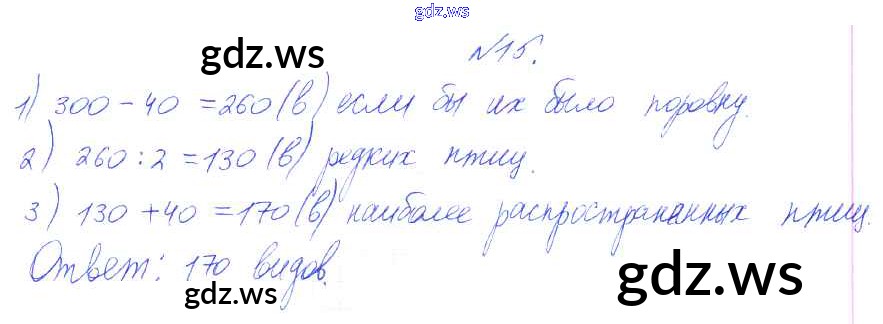 gdz.ws
gdz.ws
№15.
1) 300 - 40 = 260 (в) если бы их было поровну.
2) 260 : 2 = 130 (в) редких птиц.
3) 130 + 40 = 170 (в) наиболее распространанных птиц.
Ответ: 170 видов.
gdz.ws
gdz.ws